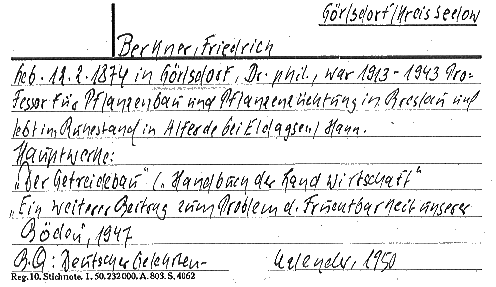 Görlsdorf/Kreis Seelow
Berkner, Friedrich
Geb. 12.2.1874 in Görlsdorf, Dr. phil., war 1913-1943 Pro-
fessor für Pflanzenbau und Pflanzenzüchtung in Breslau und
lebt im Ruhestand in Alferde bei Eldagsen/Hann.
Hauptwerke:
„Der Getreidebau" („Handbuch der Landwirtschaft"
„Ein weiterer Beitrag zum Problem d. Fruchtbarkeit unserer
Böden", 1947
B.Q: Deutscher Gelehrten- Kalender, 1950
Reg. 10. Stichnote. 1. 50. 232000. A. 803. S. 4062